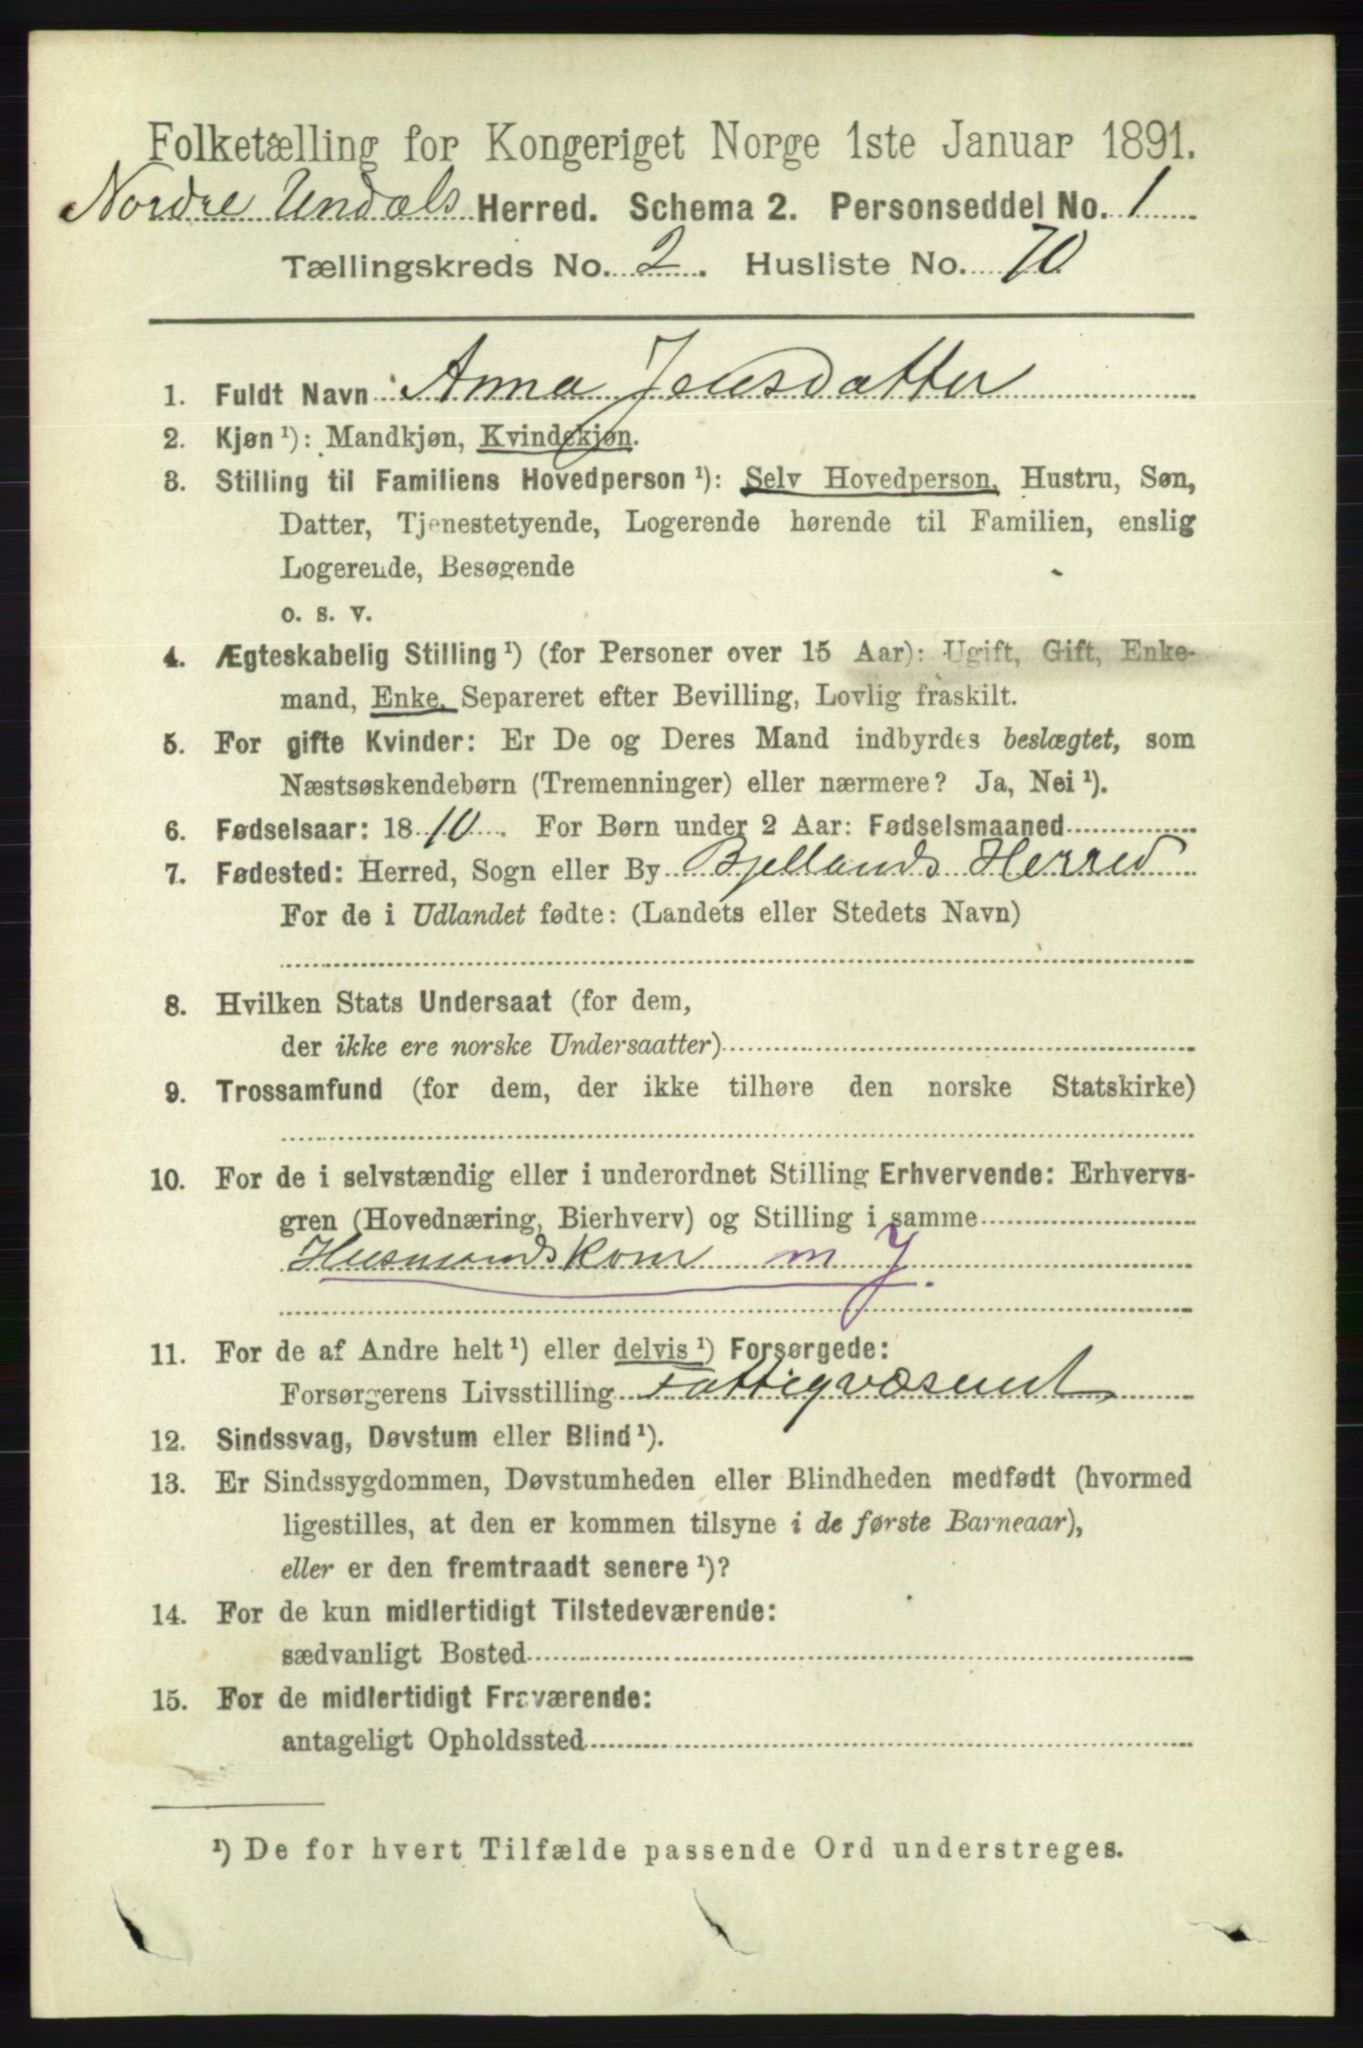 Folketælling for Kongeriget Norge 1ste Januar 1891.
Nordre Undals Herred. Schema 2. Personseddel No. 1
Tællingskreds No. 2. Husliste No. 70
1. Fuldt Navn: Anna Jensdatter
2. Kjøn ¹): Mandkjøn, Kvindekjøn.
3. Stilling til Familiens Hovedperson ¹): Selv Hovedperson, Hustru, Søn,
Datter, Tjenestetyende, Logerende hørende til Familien, enslig
Logerende, Besøgende
o. s. v.
4. Ægteskabelig Stilling ¹) (for Personer over 15 Aar): Ugift, Gift, Enke-
mand, Enke, Separeret efter Bevilling, Lovlig fraskilt.
5. For gifte Kvinder: Er De og Deres Mand indbyrdes beslægtet, som
Næstsøskendebørn (Tremenninger) eller nærmere? Ja, Nei ¹).
6. Fødselsaar: 1810. For Børn under 2 Aar: Fødselsmaaned
7. Fødested: Herred, Sogn eller By Bjellands Herred
For de i Udlandet fødte: (Landets eller Stedets Navn)
8. Hvilken Stats Undersaat (for dem,
der ikke ere norske Undersaatter)
9. Trossamfund (for dem, der ikke tilhøre den norske Statskirke)
10. For de i selvstændig eller i underordnet Stilling Erhvervende: Erhvervs-
gren (Hovednæring, Bierhverv) og Stilling i samme
Husmandskone m J.
11. For de af Andre helt ¹) eller delvis ¹) Forsørgede:
Forsørgerens Livsstilling Fattigvæsenet
12. Sindssvag, Døvstum eller Blind ¹).
13. Er Sindssygdommen, Døvstumheden eller Blindheden medfødt (hvormed
ligestilles, at den er kommen tilsyne i de første Barneaar),
eller er den fremtraadt senere ¹)?
14. For de kun midlertidigt Tilstedeværende:
sædvanligt Bosted
15. For de midlertidigt Fraværende:
antageligt Opholdssted
¹) De for hvert Tilfælde passende Ord understreges.